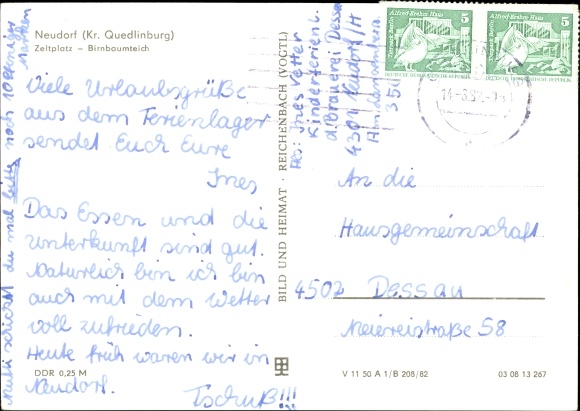 Neudorf (Kr. Quedlinburg)
Zeltplatz – Birnbaumteich
Viele Urlaubsgrüße
aus dem Ferienlager
sendet Euch Eure
Ines
Das Essen und die
Unterkunft sind gut.
Natürlich bin ich bin
auch mit dem Wetter
voll zufrieden.
Heute früh waren wir in
Neudorf.
Tschüß!!!
Mutti schickst du mal bitte noch 10
Marken
DDR 0,25 M
BILD UND HEIMAT · REICHENBACH (VOGTL)
Abs.: Ines Vetter
Kinderferienl.
d. Brauerei Dessau
4301 Neudorf/H
Alfred-Brehm-Haus
5
DEUTSCHE DEMOKRATISCHE REPUBLIK
Alfred-Brehm-Haus
5
DEUTSCHE DEMOKRATISCHE REPUBLIK
An die
Hausgemeinschaft
4502 Dessau
Meiereistraße 58
V 11 50 A 1/B 208/82
03 08 13 267